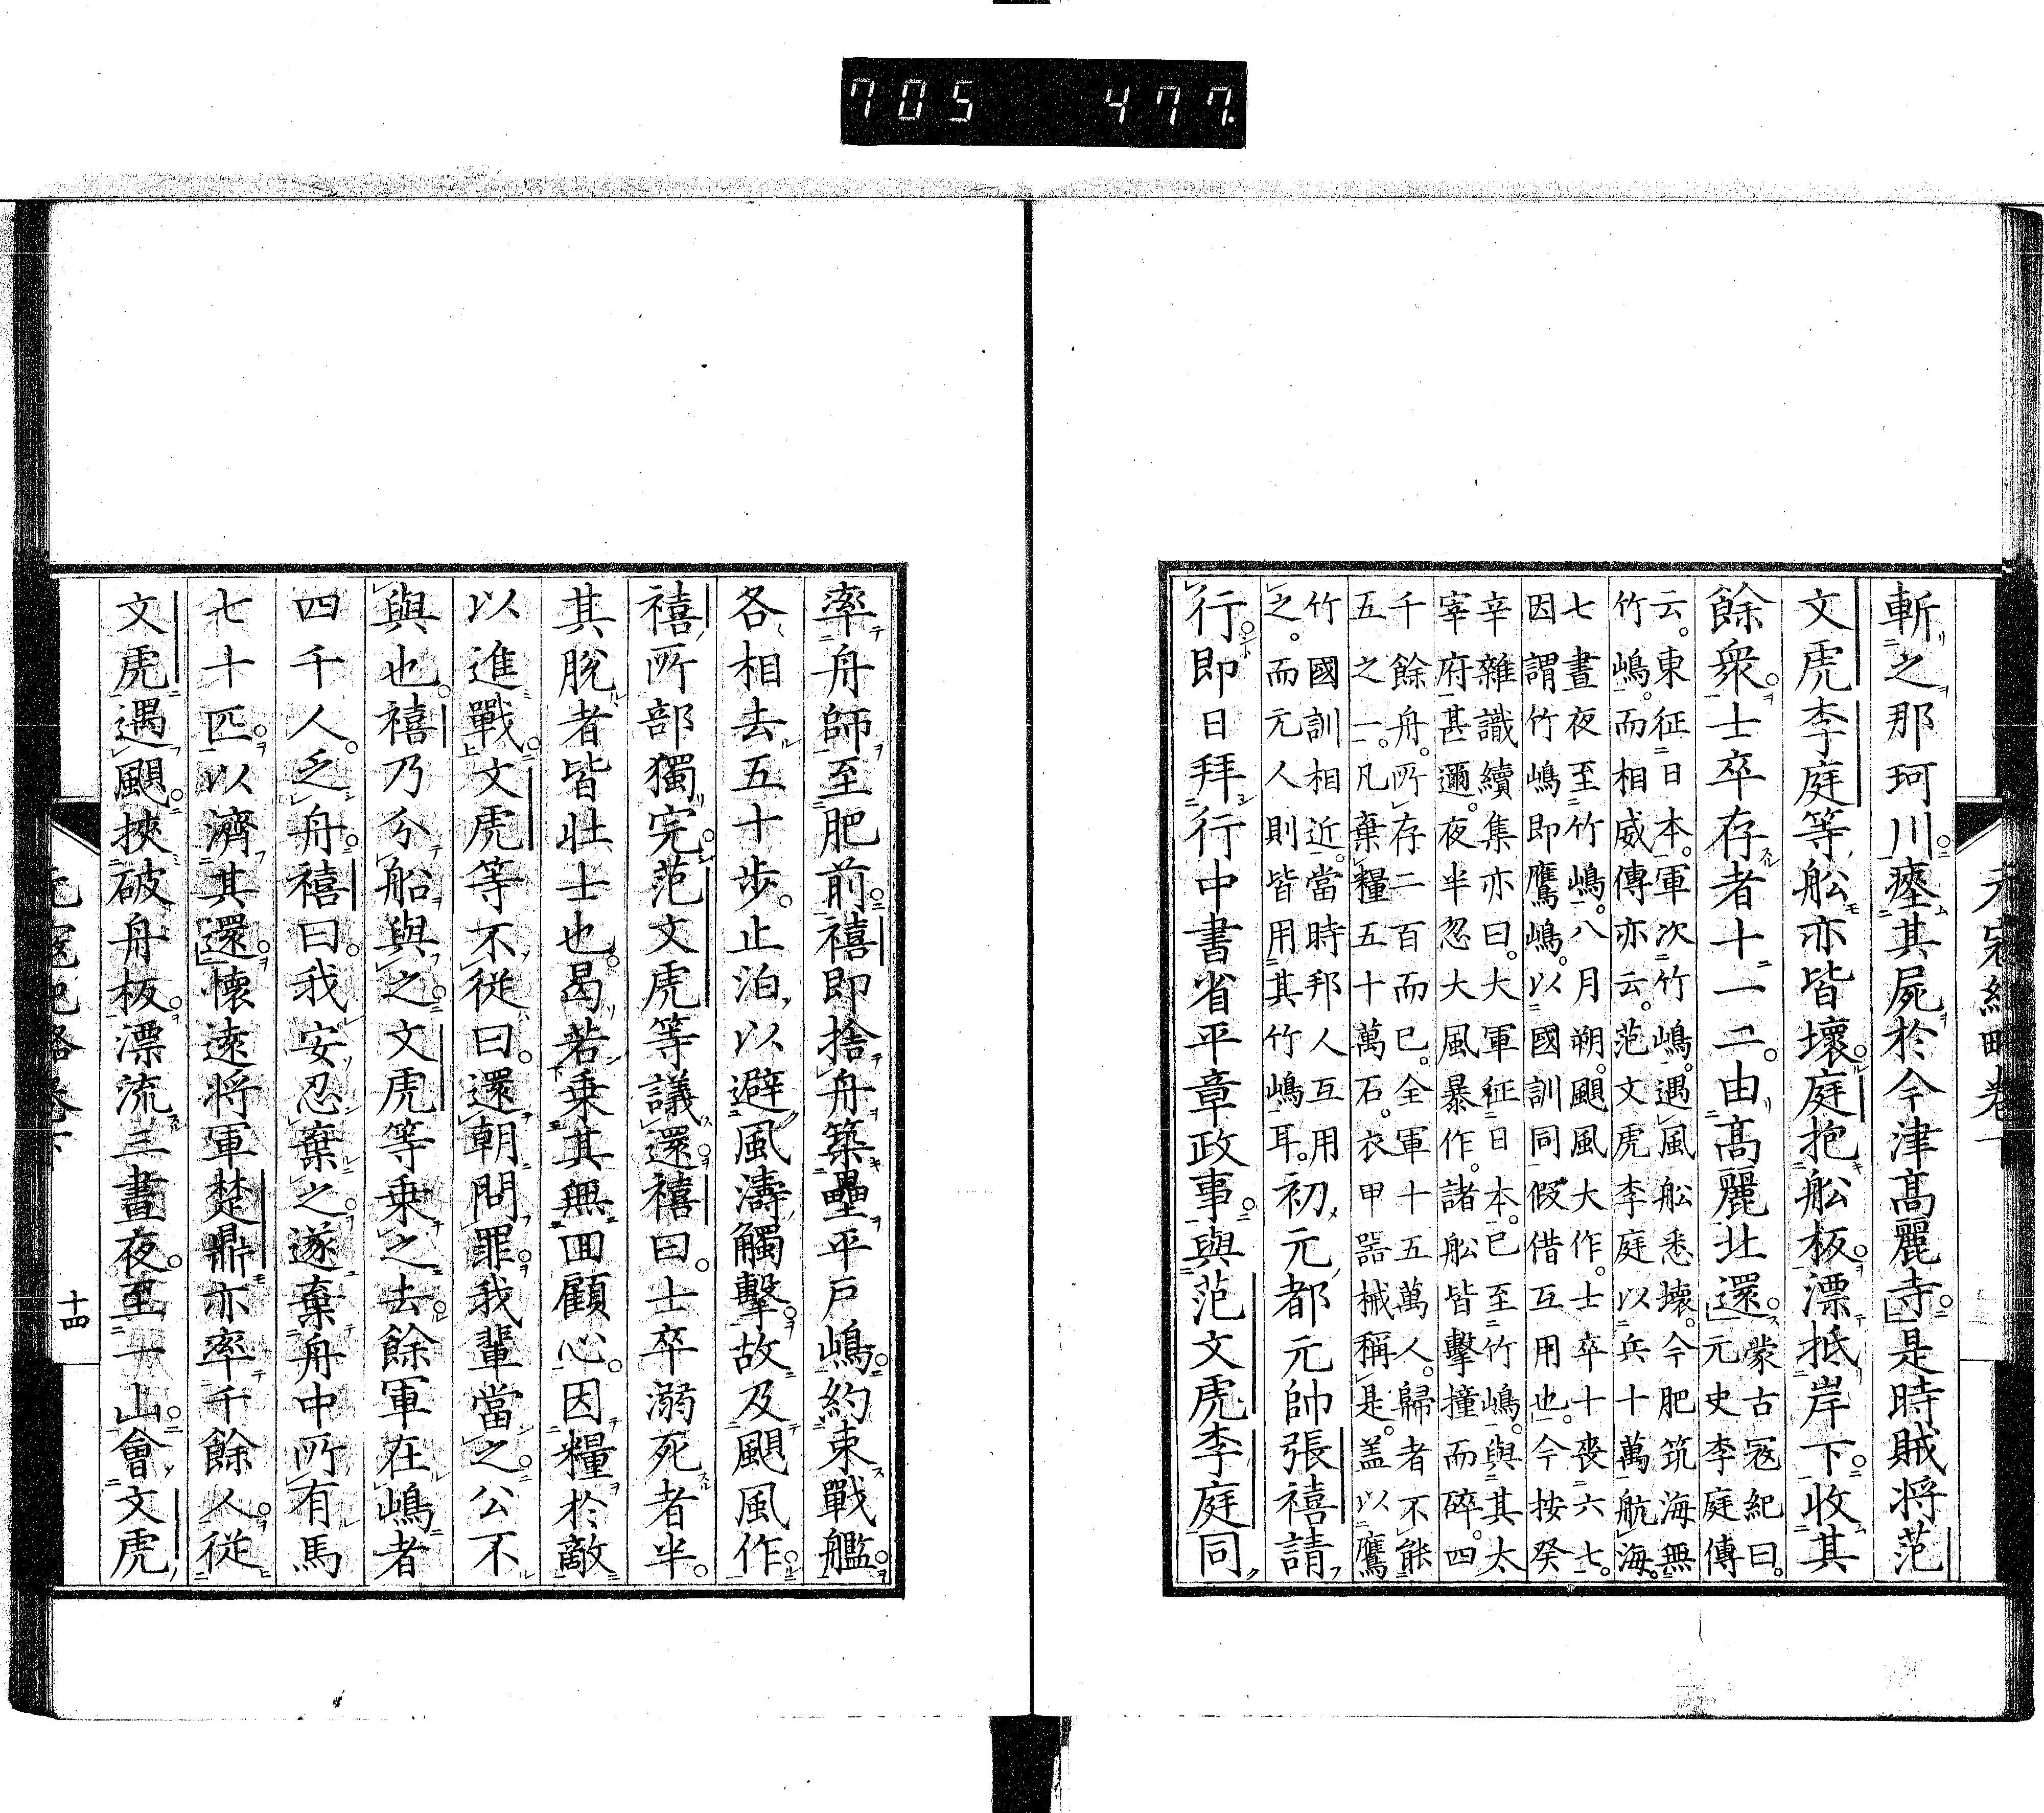 705 477.
元寇紀略卷下
斬之那珂川瘞其屍於今津高麗寺是時賊将范
文虎李庭等舩亦皆壞庭抱舩板漂抵岸下收其
餘衆士卒存者十一二由高麗北還
蒙古寇紀曰
元史李庭傳
云東征日本軍次竹嶋遇風舩悉壞今肥筑海無
竹嶋而相威傳亦云范文虎李庭以兵十萬航海
七晝夜至竹嶋八月朔颶風大作士卒十喪六七
因謂竹嶋即鷹嶋以國訓同假借互用也今按癸
辛雜識續集亦曰大軍征日本已至竹嶋與其太
宰府甚邇夜半忽大風暴作諸舩皆擊撞而碎四
千餘舟所存二百而已全軍十五萬人歸者不能
五之一凡棄糧五十萬石衣甲器械稱是盖以鷹
竹國訓相近當時邦人互用
之而元人則皆用其竹嶋耳
初元都元帥張禧請
行即日拜行中書省平章政事與范文虎李庭同
率舟師至肥前禧即捨舟築壘平戸嶋約束戰艦
各相去五十步止泊以避風濤觸擊故及颶風作
禧所部獨完范文虎等議還禧曰士卒溺死者半
其脫者皆壯士也曷若乗其無回顧心因糧於敵
以進戰文虎等不從曰還朝問罪我輩當之公不
與也禧乃分船與之文虎等乗之去餘軍在嶋者
四千人乏舟禧曰我安忍棄之遂棄舟中所有馬
七十匹以濟其還懷遠将軍楚鼎亦率千餘人從
文虎遇颶挾破舟板漂流三晝夜至一山會文虎
元寇紀略卷下
十四